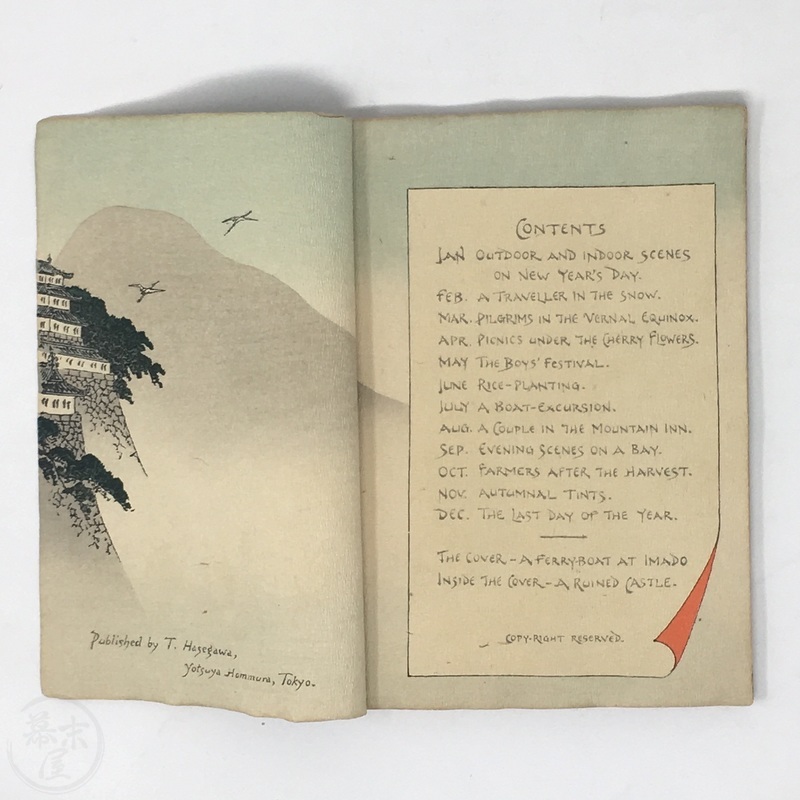 Published by T. Hasegawa,
Yotsuya Hommura, Tokyo.
CONTENTS
JAN OUTDOOR AND INDOOR SCENES
ON NEW YEAR'S DAY.
FEB. A TRAVELLER IN THE SNOW.
MAR. PILGRIMS IN THE VERNAL EQUINOX.
APR. PICNICS UNDER THE CHERRY FLOWERS.
MAY THE BOYS' FESTIVAL.
JUNE RICE-PLANTING.
JULY A BOAT-EXCURSION.
AUG. A COUPLE IN THE MOUNTAIN INN.
SEP. EVENING SCENES ON A BAY.
OCT. FARMERS AFTER THE HARVEST.
NOV. AUTUMNAL TINTS.
DEC. THE LAST DAY OF THE YEAR.
THE COVER – A FERRY-BOAT AT IMADO
INSIDE THE COVER – A RUINED CASTLE.
COPY-RIGHT RESERVED.
幕末屋